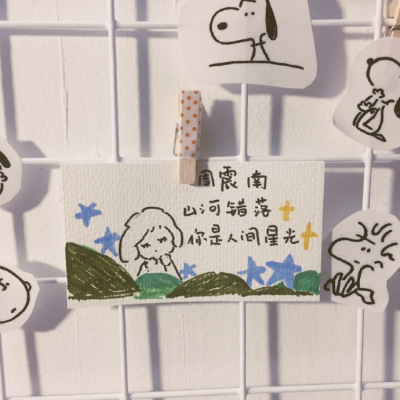 周震南
山河错落
你是人间星光